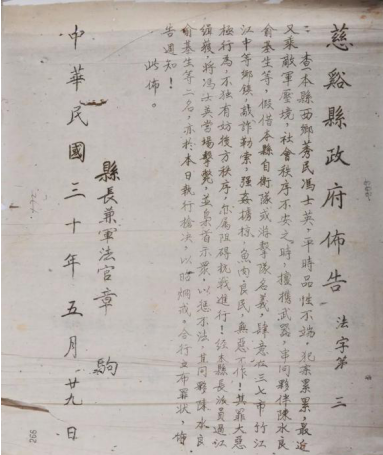 慈谿縣政府佈告 法字第 三
一、查本縣西鄉莠民馮士英，平時品性不端，犯案累累，最近
又乘敵軍壓境，社會秩序不安之時，擅攜武器，串同夥伴陳水良
俞基生等，假借本縣自衛隊或游擊隊名義，肆意在三七市竹江
江中等鄉鎮，敲詐勒索，強姦擄掠，魚肉良民，無惡不作！其罪大惡
極行為，不獨有妨後方秩序，尔屬阻碍抗戰進行！經本縣長派員過江
緝獲，將馮士英當場擊斃，並梟首示眾，以懲不法。其同夥陳水良
俞基生等二名，亦於本日執行槍決，以昭炯戒，合行公布罪狀，
告週知！
此佈。
縣長兼軍法官章 駒
中華民國三十年五月廿九日
266